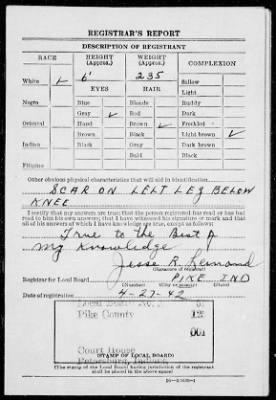 REGISTRAR'S REPORT
DESCRIPTION OF REGISTRANT
RACE HEIGHT (Approx.) WEIGHT (Approx.) COMPLEXION
White ✓ 6' 235 Sallow
EYES HAIR Light
Negro Blue Blonde Ruddy
Gray ✓ Red Dark
Oriental Hazel Brown ✓ Freckled
Brown Black Light brown ✓
Indian Black Gray Dark brown
Bald Black
Filipino
Other obvious physical characteristics that will aid in identification
SCAR ON LELT LEG BELOW
KNEE
I certify that my answers are true; that the person registered has read or has had read to him his own answers; that I have witnessed his signature or mark and that all of his answers of which I have knowledge are true, except as follows:
True to the Best of
my Knowledge
Jesse R.
(Signature of registrar)
Registrar for Local Board PIKE IND
(Number) (City or county) (State)
Date of registration 4-27-42
Local Board No.
Pike County 12
001
Court House
Petersburg, Indiana
(STAMP OF LOCAL BOARD)
(The stamp of the Local Board having jurisdiction of the registrant shall be placed in the above space)